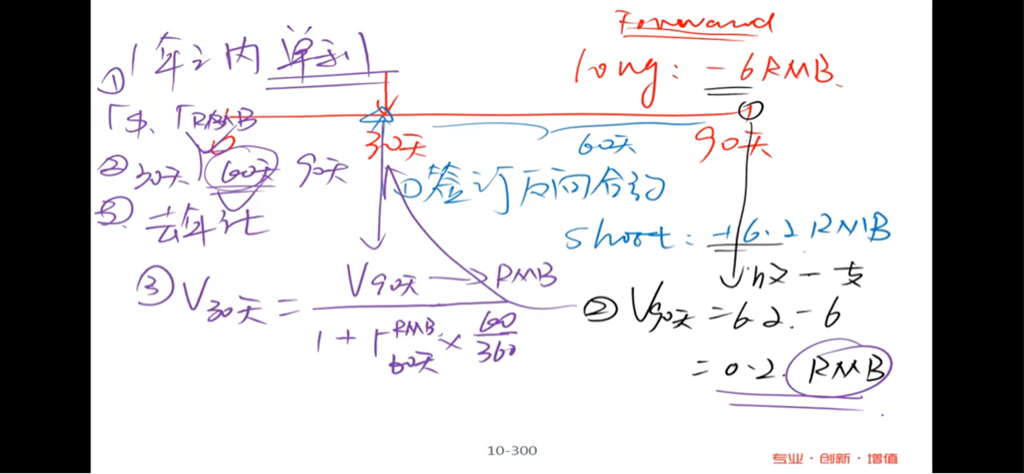 Forward
1年之内 单利
long: -6RMB.
①
r$、rRMB
30天
60天
90天
② 30天 60天 90天
①签订反向合约
③ 去年化
short: +6.2RMB
收-支
③V30天 = V90天 → RMB
1 + rRMB60天 × 60/360
②V90天 = 6.2-6
= 0.2 RMB
10-300
专业·创新·增值